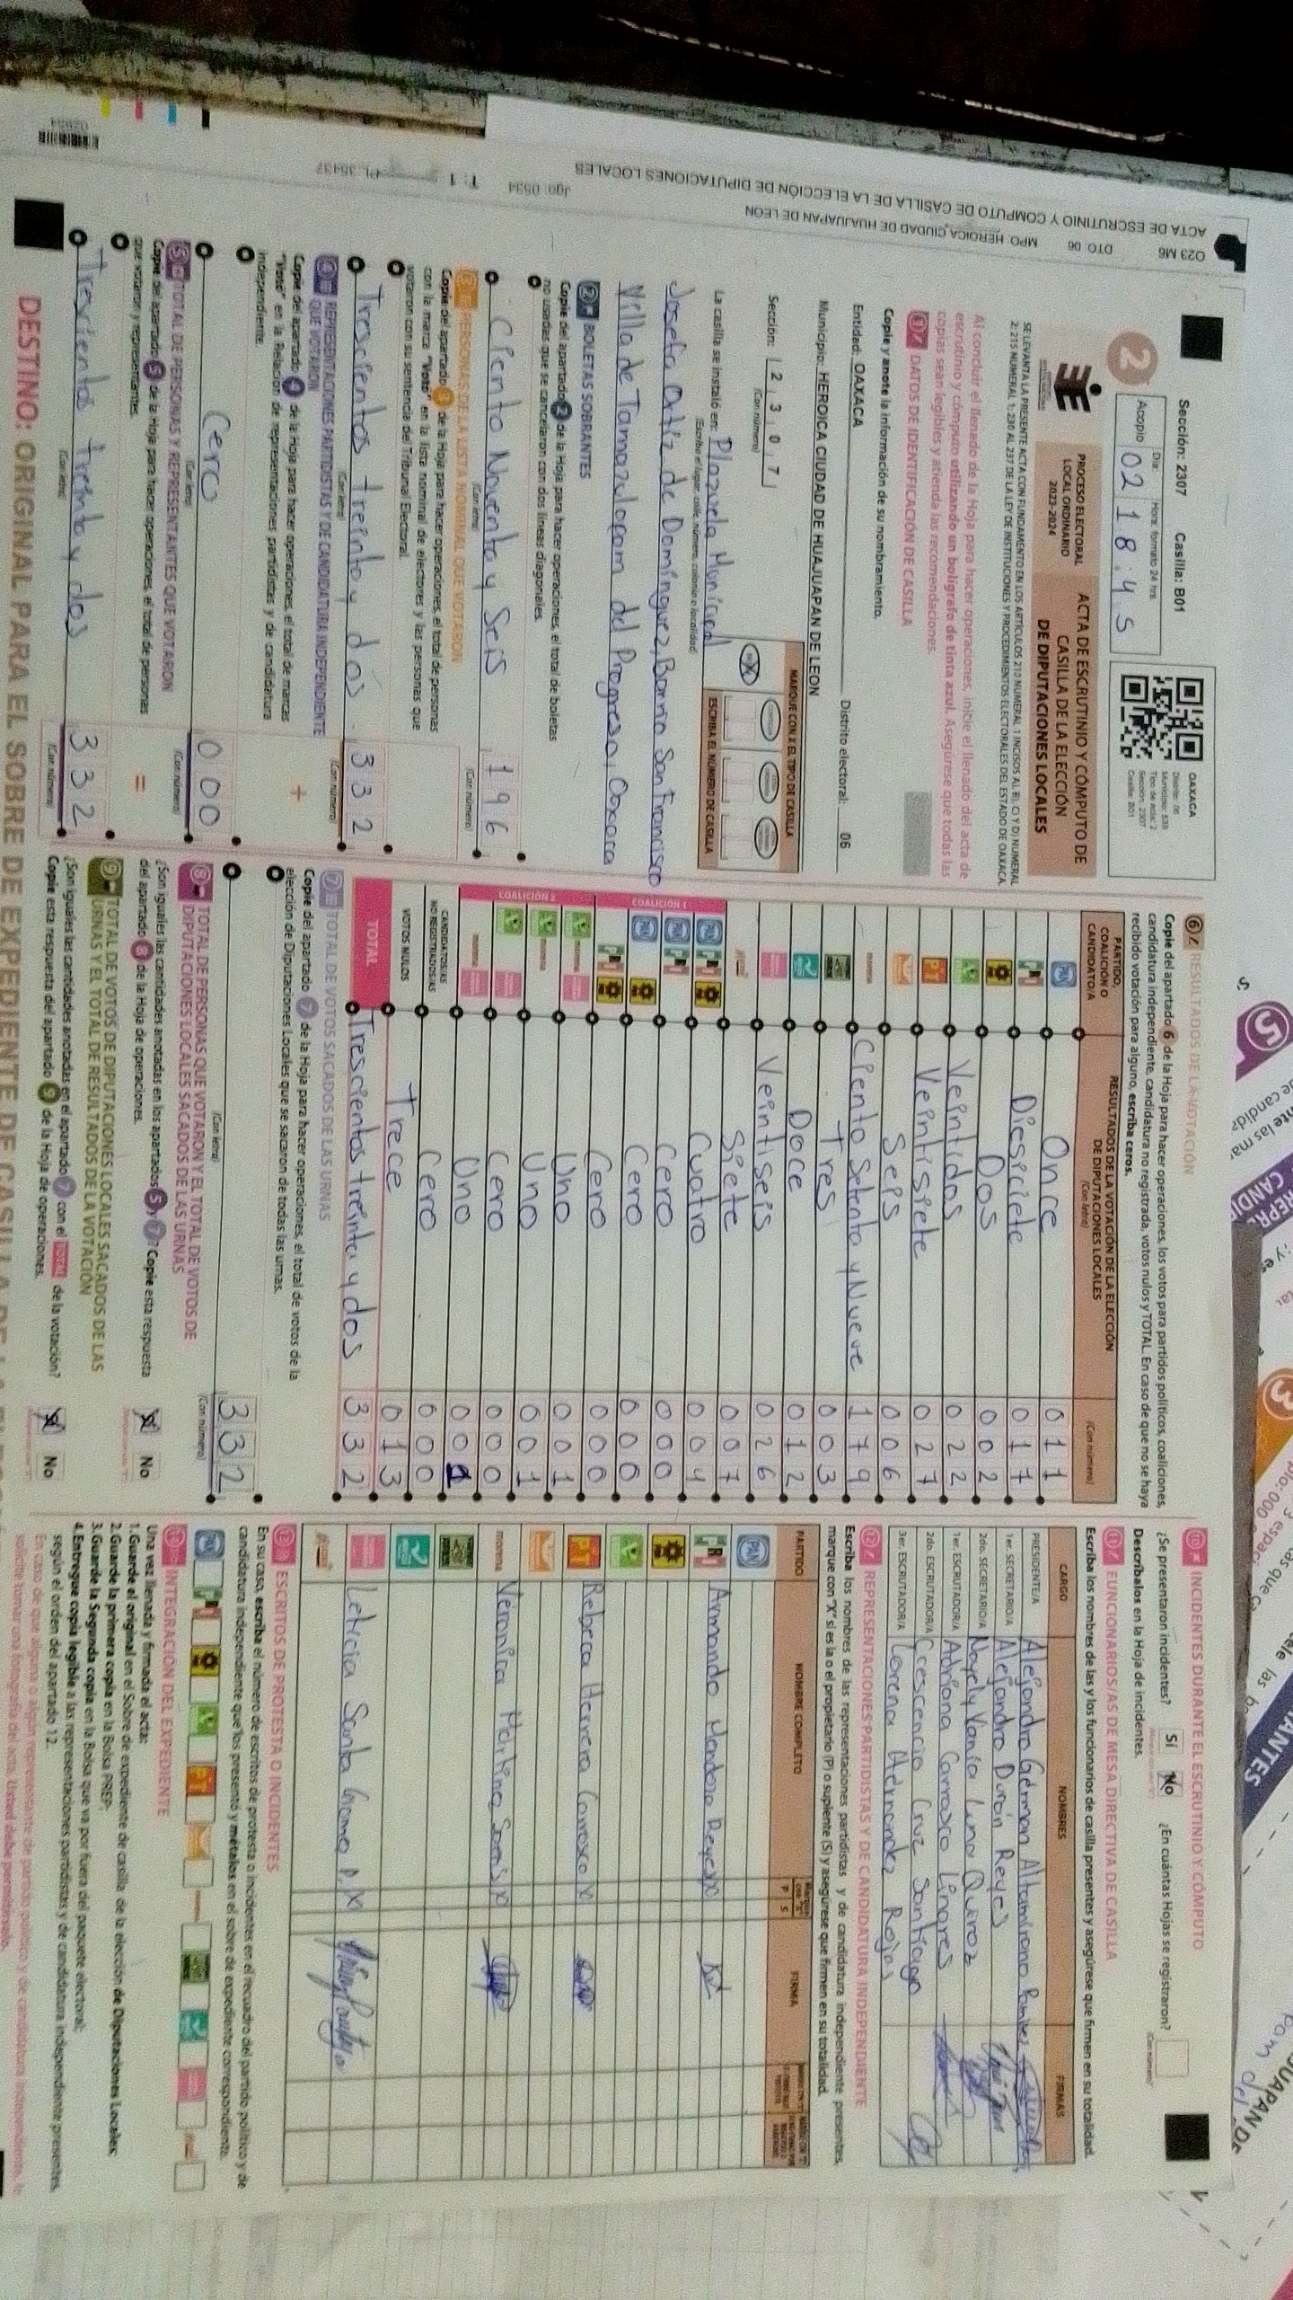 ACTA DE ESCRUTINIO Y COMPUTO DE CASILLA DE LA ELECCIÓN DE DIPUTACIONES LOCALES
O23 M6 DTO 06 MPO. HEROICA CIUDAD DE HUAJUAPAN DE LEON
Jgo: 0534 T: 1
Sección: 2307 Casilla: B01
OAXACA
2
Acopio
Día: Hora: formato 24 hrs.
02 18:45
PROCESO ELECTORAL
LOCAL ORDINARIO
2023-2024
ACTA DE ESCRUTINIO Y CÓMPUTO DE
CASILLA DE LA ELECCIÓN
DE DIPUTACIONES LOCALES
Al concluir el llenado de la Hoja para hacer operaciones, inicie el llenado del acta de
escrutinio y cómputo utilizando un bolígrafo de tinta azul. Asegúrese que todas las
copias sean legibles y atienda las recomendaciones.
1 DATOS DE IDENTIFICACIÓN DE CASILLA
Copie y anote la información de su nombramiento.
Entidad: OAXACA Distrito electoral: 06
Municipio: HEROICA CIUDAD DE HUAJUAPAN DE LEON
Sección: 2307
(Con número)
MARQUE CON X EL TIPO DE CASILLA
ESCRIBA EL NÚMERO DE CASILLA
La casilla se instaló en: Plazuela Municipal
(Escriba el lugar, calle, número, colonia o localidad)
Josefa Ortíz de Domínguez, Barrio San Francisco
Villa de Tamazulopam del Progreso, Oaxaca
2 BOLETAS SOBRANTES
Copie del apartado 2 de la Hoja para hacer operaciones, el total de boletas
no usadas que se cancelaron con dos líneas diagonales.
Ciento Noventa y Seis 196
(Con letra) (Con número)
3 PERSONAS DE LA LISTA NOMINAL QUE VOTARON
Copie del apartado 3 de la Hoja para hacer operaciones, el total de personas
con la marca "Votó" en la lista nominal de electores y las personas que
votaron con su sentencia del Tribunal Electoral.
Trescientos treinta y dos 332
(Con letra) (Con número)
4 REPRESENTACIONES PARTIDISTAS Y DE CANDIDATURA INDEPENDIENTE
QUE VOTARON
+
Copie del apartado 4 de la Hoja para hacer operaciones, el total de marcas
"Votó" en la Relación de representaciones partidistas y de candidatura
independiente.
Cero 000
(Con letra) (Con número)
5 TOTAL DE PERSONAS Y REPRESENTANTES QUE VOTARON
Copie del apartado 5 de la Hoja para hacer operaciones, el total de personas
que votaron y representantes.
=
Trescientos treinta y dos 332
(Con letra) (Con número)
DESTINO: ORIGINAL PARA EL SOBRE DE EXPEDIENTE DE CASILLA
6 RESULTADOS DE LA VOTACIÓN
Copie del apartado 6 de la Hoja para hacer operaciones, los votos para partidos políticos, coaliciones,
candidatura independiente, candidatura no registrada, votos nulos y TOTAL. En caso de que no se haya
recibido votación para alguno, escriba ceros.
PARTIDO, COALICIÓN O CANDIDATO/A
RESULTADOS DE LA VOTACIÓN DE LA ELECCIÓN
DE DIPUTACIONES LOCALES
(Con letra) (Con número)
PAN Once 011
PRI Diesiciete 017
Dos 002
Veintidos 022
PT Veintisiete 027
Seis 006
morena Ciento Setenta y Nueve 179
Tres 003
Doce 012
Veintiseis 026
Siete 007
COALICIÓN 1
Cuatro 004
Cero 000
Cero 000
Cero 000
COALICIÓN 2
Uno 001
Uno 001
Cero 000
Uno 001
CANDIDATOS/AS NO REGISTRADOS/AS Cero 000
VOTOS NULOS Trece 013
TOTAL Trescientos treinta y dos 332
7 TOTAL DE VOTOS SACADOS DE LAS URNAS
Copie del apartado 7 de la Hoja para hacer operaciones, el total de votos de la
elección de Diputaciones Locales que se sacaron de todas las urnas.
332
(Con letra) (Con número)
8 TOTAL DE PERSONAS QUE VOTARON Y EL TOTAL DE VOTOS DE
DIPUTACIONES LOCALES SACADOS DE LAS URNAS
¿Son iguales las cantidades anotadas en los apartados 5 y 7? Copie esta respuesta
del apartado 8 de la Hoja de operaciones.
Sí No
9 TOTAL DE VOTOS DE DIPUTACIONES LOCALES SACADOS DE LAS
URNAS Y EL TOTAL DE RESULTADOS DE LA VOTACIÓN
¿Son iguales las cantidades anotadas en el apartado 7 con el TOTAL de la votación?
Copie esta respuesta del apartado 9 de la Hoja de operaciones.
Sí No
10 INCIDENTES DURANTE EL ESCRUTINIO Y CÓMPUTO
¿Se presentaron incidentes? Sí No ¿En cuántas Hojas se registraron?
Descríbalos en la Hoja de incidentes.
11 FUNCIONARIOS/AS DE MESA DIRECTIVA DE CASILLA
Escriba los nombres de las y los funcionarios de casilla presentes y asegúrese que firmen en su totalidad.
CARGO NOMBRES FIRMAS
PRESIDENTE/A Alejandra Germán Altamirano
1er. SECRETARIO/A Alejandro Durán Reyes
2do. SECRETARIO/A Nayely Vanía Luna Quiroz
1er. ESCRUTADOR/A Adriana Carrasco Linares
2do. ESCRUTADOR/A Crescencia Cruz Santiago
3er. ESCRUTADOR/A Lorena Hernandez Rojas
12 REPRESENTACIONES PARTIDISTAS Y DE CANDIDATURA INDEPENDIENTE
Escriba los nombres de las representaciones partidistas y de candidatura independiente presentes,
marque con "X" si es la o el propietario (P) o suplente (S) y asegúrese que firmen en su totalidad.
PARTIDO NOMBRE COMPLETO FIRMA
PAN
PRI Armando Mendoza Reyes
PT Rebeca Herrera Carrasco
morena Veronica Martinez
Leticia Santa
13 ESCRITOS DE PROTESTA O INCIDENTES
En su caso, escriba el número de escritos de protesta o incidentes en el recuadro del partido político y de
candidatura independiente que los presentó y métalos en el sobre de expediente correspondiente.
14 INTEGRACIÓN DEL EXPEDIENTE
Una vez llenada y firmada el acta:
1.Guarde el original en el Sobre de expediente de casilla de la elección de Diputaciones Locales;
2.Guarde la primera copia en la Bolsa PREP;
3.Guarde la Segunda copia en la Bolsa que va por fuera del paquete electoral;
4.Entregue copia legible a las representaciones partidistas y de candidatura independiente presentes,
según el orden del apartado 12.